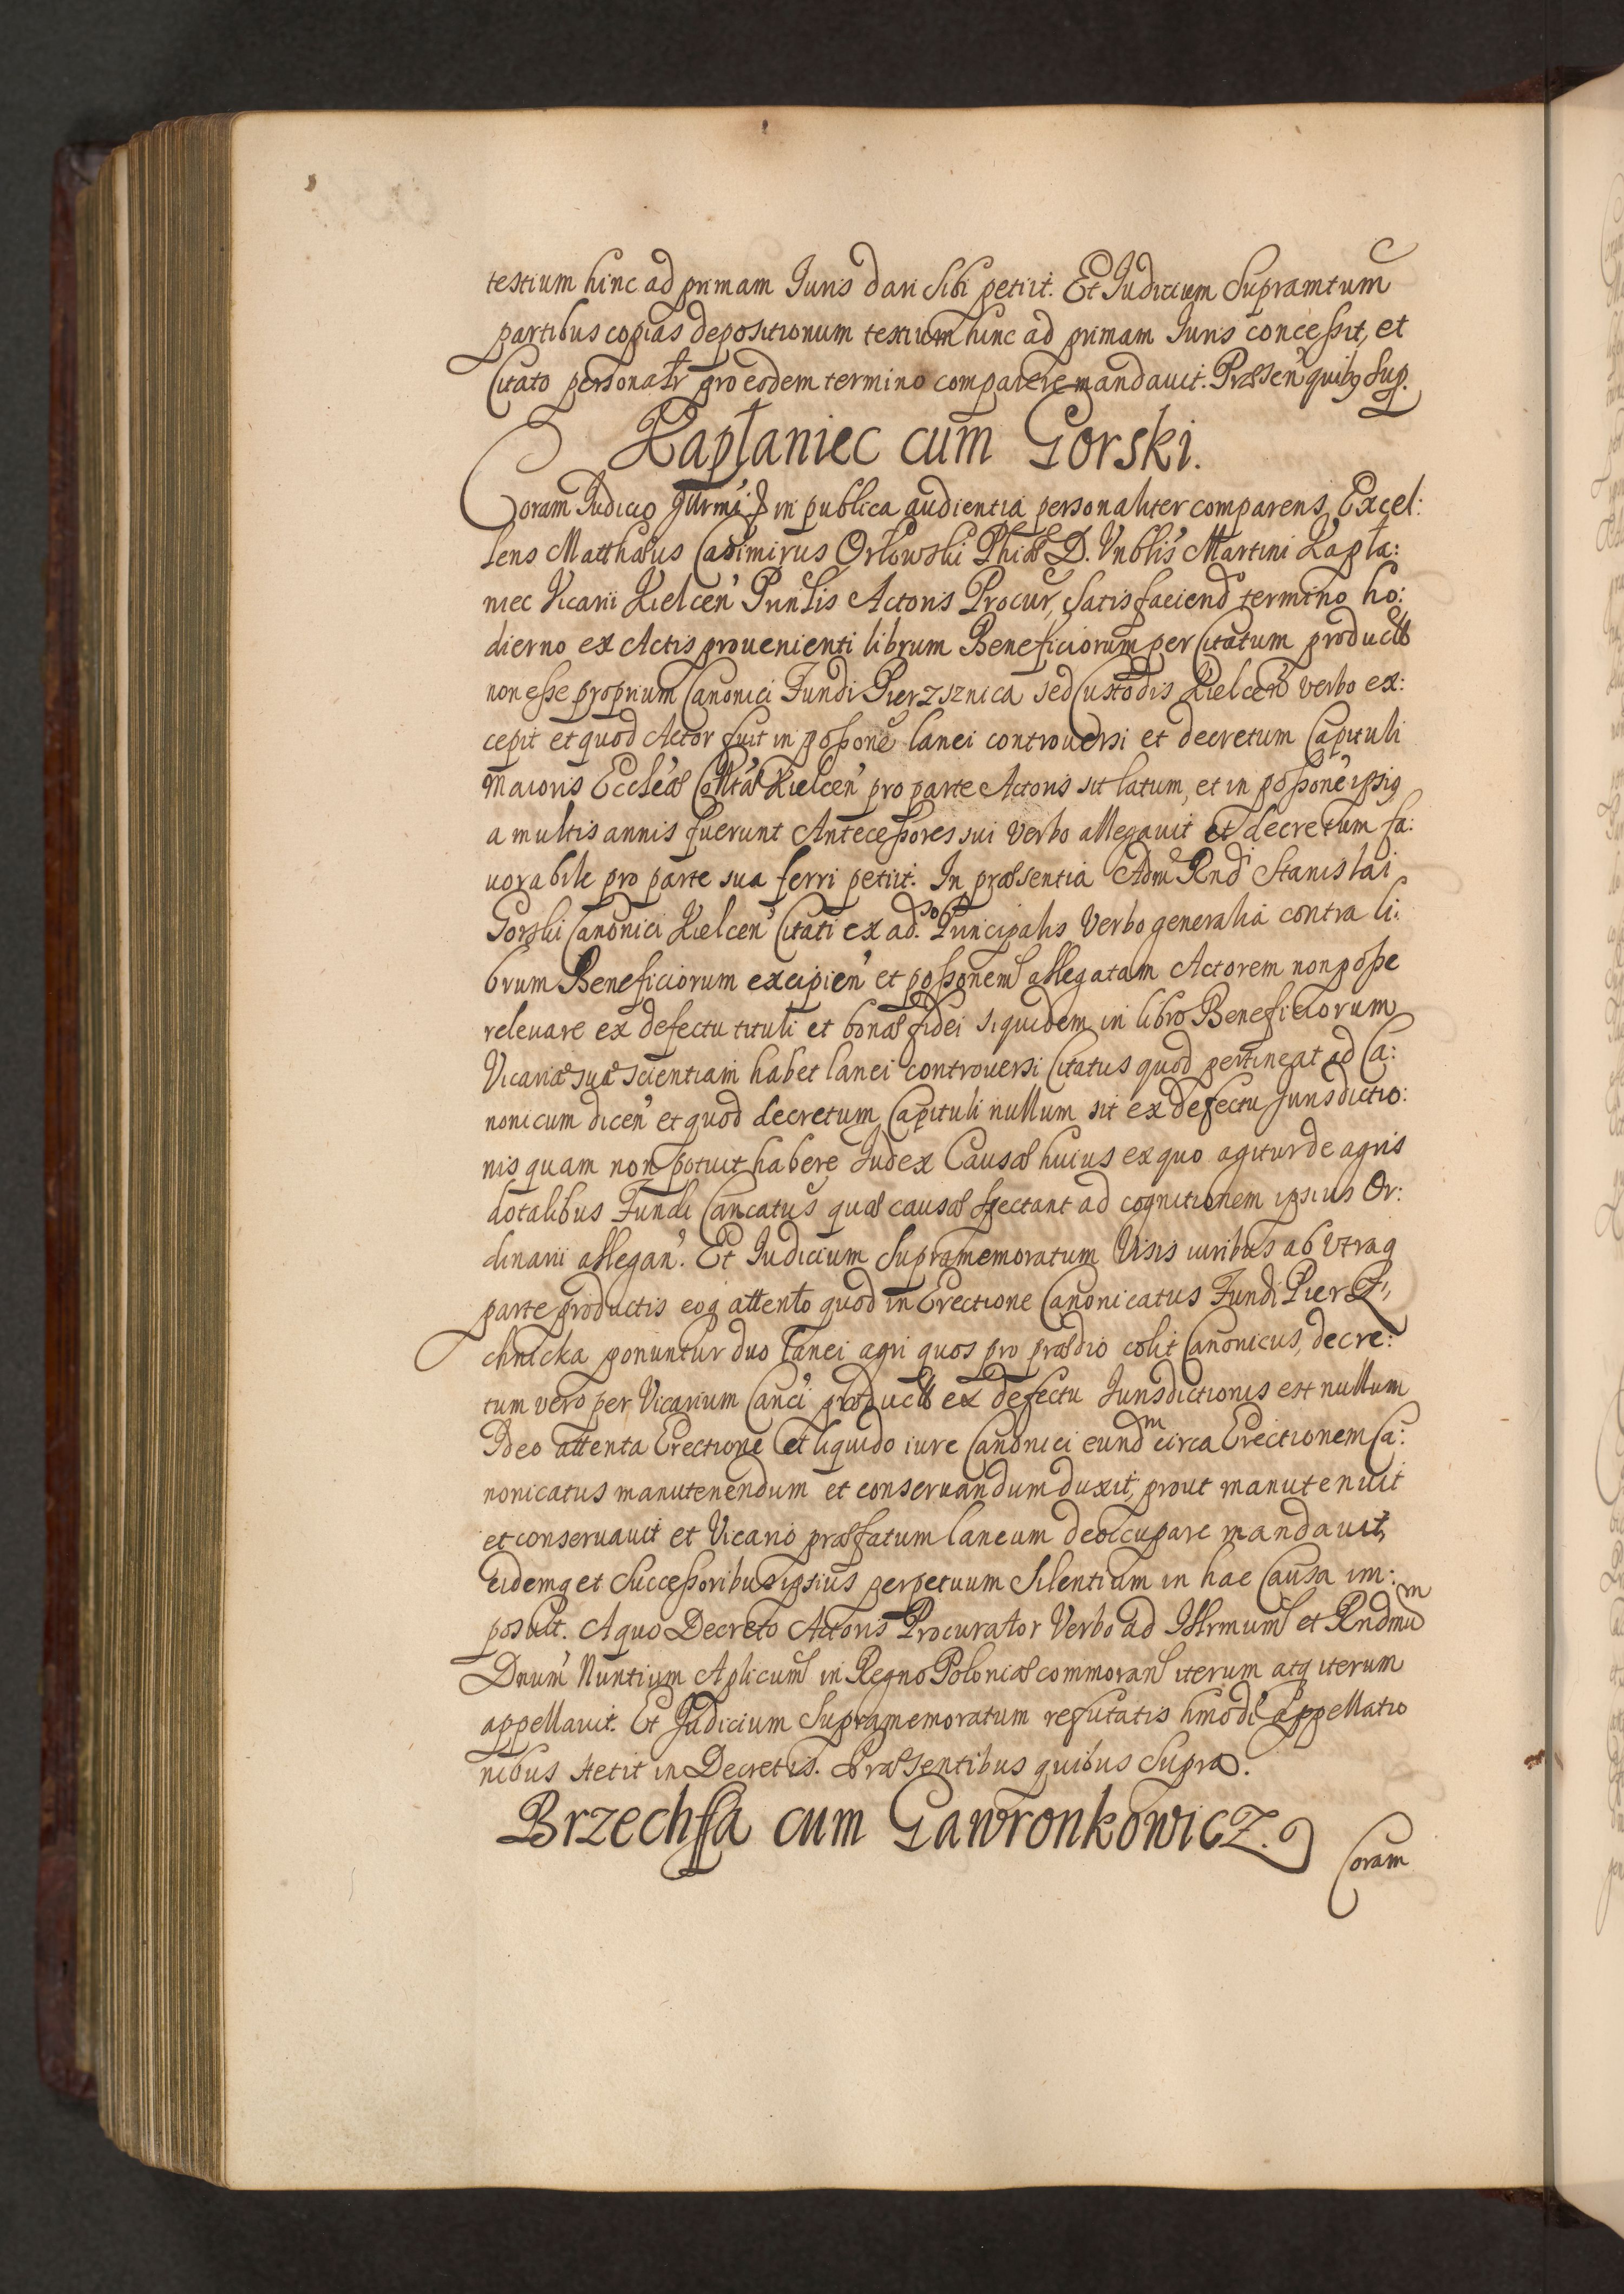 testium hinc ad primam Iuris dari sibi petiit. Et Iudicium Supramtum
partibus copias depositionum testium hinc ad primam Iuris concessit, et
Citato personalr pro eodem termino comparere mandauit. Præsen quibq sup.
Kapłaniec cum Gorski.
Coram Iudicio in publica audientia personaliter comparens Excel:
lens Matthæus Casimirus Orłowski Phiæ D. Vnblis Martini Kapła:
niec Vicarii Kielcen Prinlis Actoris Procur, satisfaciend termino ho:
dierno ex Actis prouenienti librum Beneficiorum per Citatum product
non esse proprium Canonici Fundi Pierzsznica sed Custodis Kielcen verbo ex:
cepit et quod Actor fuit in possone lanei controuersi et decretum Capituli
Maioris Eccleæ Colltæ Kielcen pro parte Actoris sit latum, et in possone ipsiq
a multis annis fuerunt Antecessores sui verbo allegauit et decretum fa:
uorabile pro parte sua ferri petiit. In præsentia Adm Rndi Stanislai
Gorski Canonici Kielcen Citati ex ad.so Principalis Verbo generalia contra li:
brum Beneficiorum excipien et possonem allegatam Actorem non posse
releuare ex defectu tituli et bonæ fidei siquidem in libro Beneficiorum
Vicariæ suæ scientiam habet lanei controuersi Citatus quod pertineat ad Ca:
nonicum dicen et quod decretum Capituli nullum sit ex defectu Iurisdictio:
nis quam non potuit habere Iudex Causæ huius ex quo agitur de agris
dotalibus Fundi Cancatus quæ causæ spectant ad cognitionem ipsius Or:
dinarii allegan. Et Iudicium Supramemoratum Visis iuribus ab vtraq
parte productis eoq attento quod in Erectione Canonicatus Fundi Pierz,
chnicka ponuntur duo lanei agri quos pro prædio colit Canonicus, decre:
tum vero per Vicarium Canci product ex defectu Iurisdictionis est nullum
Ideo attenta Erectione et liquido iure Canonici eundm circa Erectionem Ca:
nonicatus manutenendum et conseruandum duxit, prout manutenuit
et conseruauit et Vicario præfatum laneum deoccupare mandauit,
eidemq et Successoribus ipsius perpetuum Silentium in hac Causa im:
posuit. A quo Decreto Actoris Procurator Verbo ad Illrmum et Rndmum
Dnum Nuntium Aplicum in Regno Poloniæ commoran iterum atq iterum
appellauit. Et Iudicium Supramemoratum refutatis hmodi Appellatio
nibus stetit in Decretis. Præsentibus quibus Supra.
Brzechffa cum Gawronkowicz.
Coram